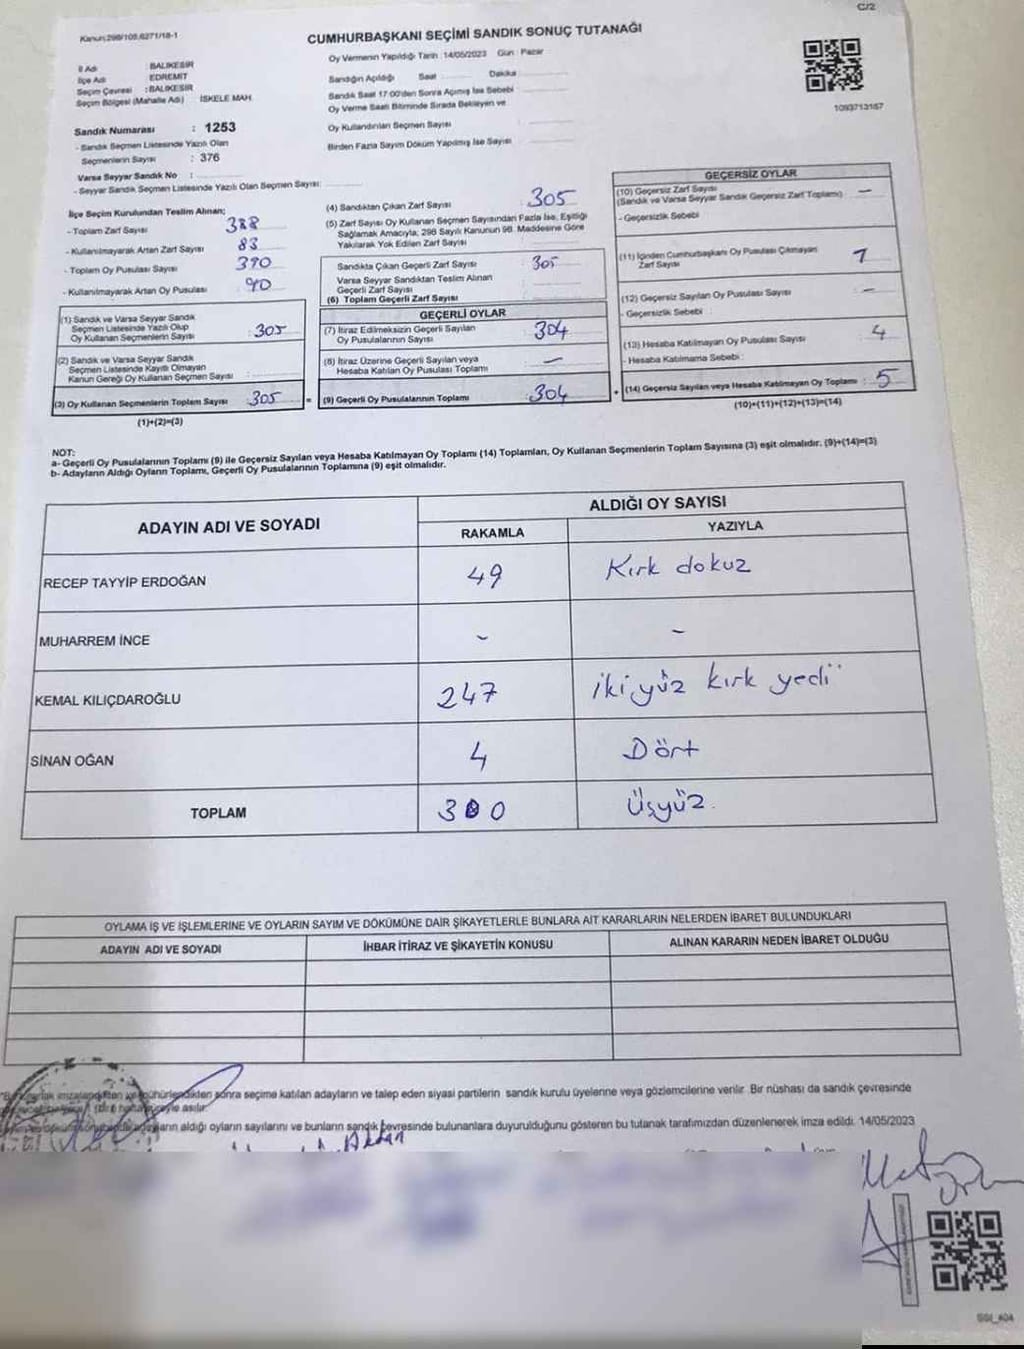 C/2
Kanun:298/109,6271/18-1
CUMHURBAŞKANI SEÇİMİ SANDIK SONUÇ TUTANAĞI
İl Adı BALIKESİR
İlçe Adı EDREMİT
Seçim Çevresi : BALIKESİR
Seçim Bölgesi (Mahalle Adı) İSKELE MAH.
Sandık Numarası : 1253
- Sandık Seçmen Listesinde Yazılı Olan
Seçmenlerin Sayısı : 376
Varsa Seyyar Sandık No :
- Seyyar Sandık Seçmen Listesinde Yazılı Olan Seçmen Sayısı:
Oy Vermenin Yapıldığı Tarih : 14/05/2023 Gün : Pazar
Sandığın Açıldığı Saat Dakika
Sandık Saat 17:00'den Sonra Açmış İse Sebebi
Oy Verme Saati Bitiminde Sırada Bekleyen ve
Oy Kullandırılan Seçmen Sayısı :
Birden Fazla Sayım Döküm Yapılmış İse Sayısı
1093713157
İlçe Seçim Kurulundan Teslim Alınan;
- Toplam Zarf Sayısı 388
- Kullanılmayarak Artan Zarf Sayısı 83
- Toplam Oy Pusulası Sayısı 390
- Kullanılmayarak Artan Oy Pusulası 90
(1) Sandık ve Varsa Seyyar Sandık
Seçmen Listesinde Yazılı Olup
Oy Kullanan Seçmenlerin Sayısı : 305
(2) Sandık ve Varsa Seyyar Sandık
Seçmen Listesinde Kayıtlı Olmayan
Kanun Gereği Oy Kullanan Seçmen Sayısı :
(3) Oy Kullanan Seçmenlerin Toplam Sayısı : 305 =
(1)+(2)=(3)
(4) Sandıktan Çıkan Zarf Sayısı : 305
(5) Zarf Sayısı Oy Kullanan Seçmen Sayısından Fazla İse, Eşitliği
Sağlamak Amacıyla; 298 Sayılı Kanunun 98. Maddesine Göre
Yakılarak Yok Edilen Zarf Sayısı
Sandıkta Çıkan Geçerli Zarf Sayısı : 305
Varsa Seyyar Sandıktan Teslim Alınan
Geçerli Zarf Sayısı
(6) Toplam Geçerli Zarf Sayısı
GEÇERLİ OYLAR
(7) İtiraz Edilmeksizin Geçerli Sayılan
Oy Pusulasının Sayısı : 304
(8) İtiraz Üzerine Geçerli Sayılan veya
Hesaba Katılan Oy Pusulası Toplamı : –
(9) Geçerli Oy Pusulalarının Toplamı : 304 +
GEÇERSİZ OYLAR
(10) Geçersiz Zarf Sayısı
(Sandık ve Varsa Seyyar Sandık Geçersiz Zarf Toplamı) : –
- Geçersizlik Sebebi
(11) İçinden Cumhurbaşkanı Oy Pusulası Çıkmayan
Zarf Sayısı : 1
(12) Geçersiz Sayılan Oy Pusulası Sayısı : –
- Geçersizlik Sebebi :
(13) Hesaba Katılmayan Oy Pusulası Sayısı : 4
- Hesaba Katılmama Sebebi :
(14) Geçersiz Sayılan veya Hesaba Katılmayan Oy Toplamı : 5
(10)+(11)+(12)+(13)=(14)
NOT:
a- Geçerli Oy Pusulalarının Toplamı (9) ile Geçersiz Sayılan veya Hesaba Katılmayan Oy Toplamı (14) Toplamları, Oy Kullanan Seçmenlerin Toplam Sayısına (3) eşit olmalıdır. (9)+(14)=(3)
b- Adayların Aldığı Oyların Toplamı, Geçerli Oy Pusulalarının Toplamına (9) eşit olmalıdır.
ADAYIN ADI VE SOYADI ALDIĞI OY SAYISI
RAKAMLA YAZIYLA
RECEP TAYYİP ERDOĞAN 49 Kırk dokuz
MUHARREM İNCE - -
KEMAL KILIÇDAROĞLU 247 ikiyüz kırk yedi
SİNAN OĞAN 4 Dört
TOPLAM 300 Üçyüz.
OYLAMA İŞ VE İŞLEMLERİNE VE OYLARIN SAYIM VE DÖKÜMÜNE DAİR ŞİKAYETLERLE BUNLARA AİT KARARLARIN NELERDEN İBARET BULUNDUKLARI
ADAYIN ADI VE SOYADI İHBAR İTİRAZ VE ŞİKAYETİN KONUSU ALINAN KARARIN NEDEN İBARET OLDUĞU
imzalandıktan ve mühürlendikten sonra seçime katılan adayların ve talep eden siyasi partilerin sandık kurulu üyelerine veya gözlemcilerine verilir. Bir nüshası da sandık çevresinde
süreyle asılır.
adayların aldığı oyların sayılarını ve bunların sandık çevresinde bulunanlara duyurulduğunu gösteren bu tutanak tarafımızdan düzenlenerek imza edildi. 14/05/2023
SSI_404